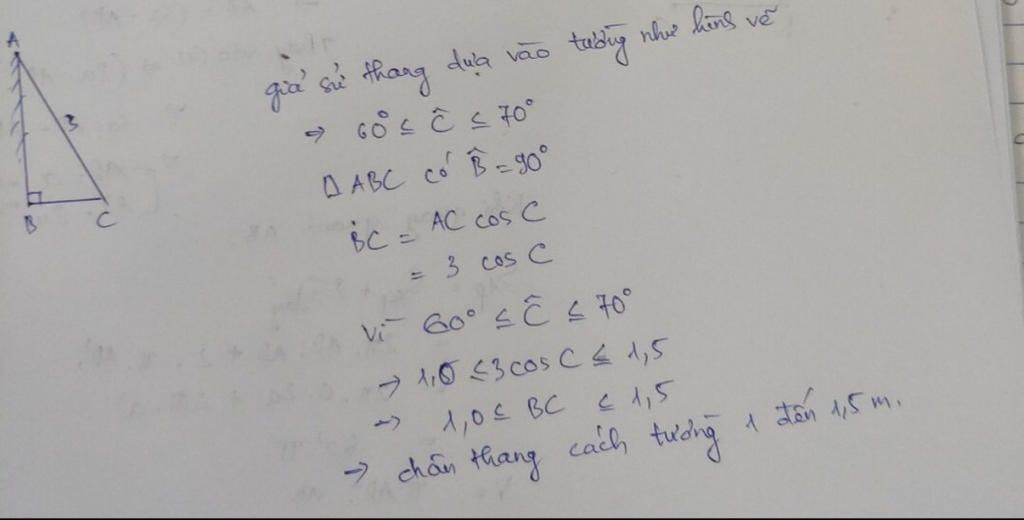 A
3
B
C
giả sử thang dựa vào tường như hình vẽ
⇒ 60° ≤ Ĉ ≤ 70°
△ ABC có B̂ = 90°
BC = AC cos C
= 3 cos C
Vì 60° ≤ Ĉ ≤ 70°
→ 1,0 ≤ 3 cos C ≤ 1,5
→ 1,0 ≤ BC ≤ 1,5
→ chân thang cách tường 1 đến 1,5 m.